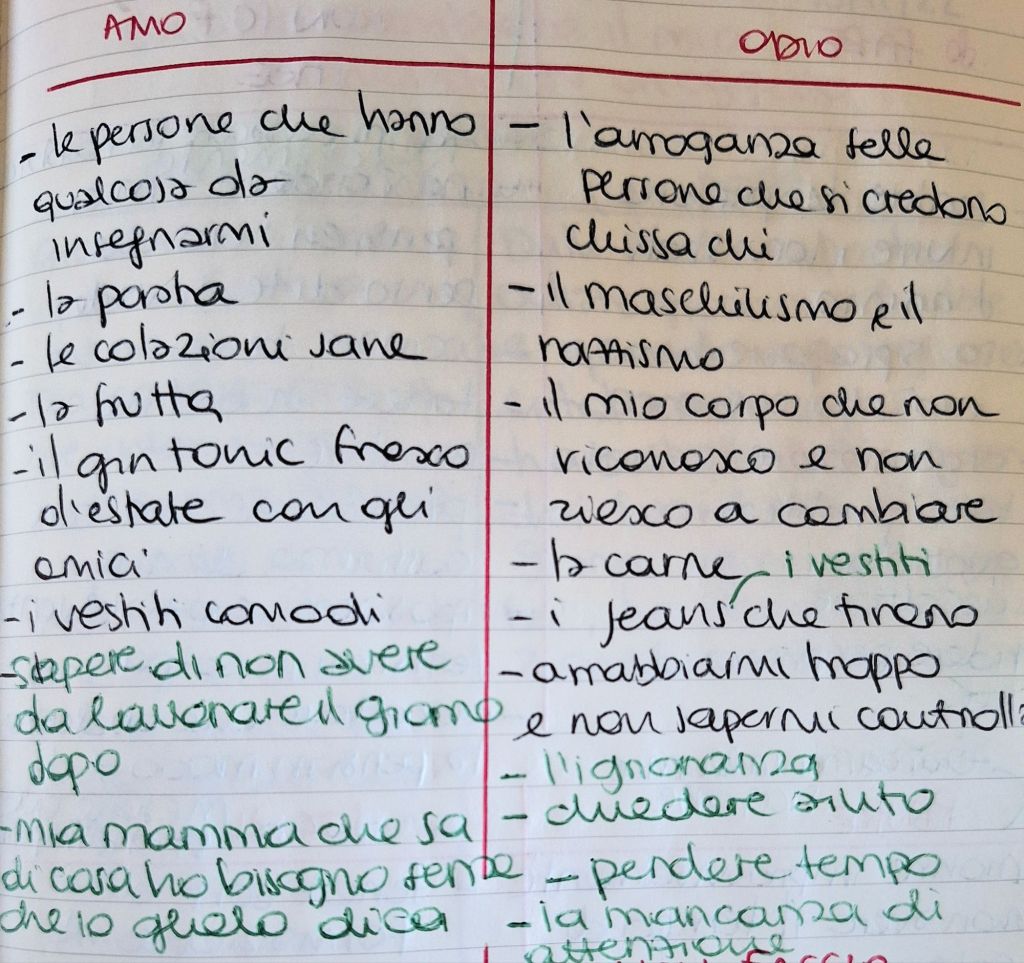 AMO
- le persone che hanno
qualcosa da
insegnarmi
- la pasta
- le colazioni sane
- la frutta
- il gin tonic fresco
d'estate con gli
amici
- i vestiti comodi
- sapere di non avere
da lavorare il giorno
dopo
- mia mamma che sa
di cosa ho bisogno senza
che io glielo dica
ODIO
- l'arroganza delle
persone che si credono
chissa chi
- il maschilismo e il
nazismo
- il mio corpo che non
riconosco e non
riesco a cambiare
- la carne
i vestiti
- i jeans che tirano
- arrabbiarmi troppo
e non sapermi controlla
- l'ignoranza
- chiedere aiuto
- perdere tempo
- la mancanza di
attenzione